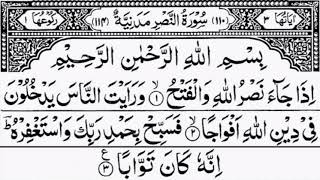 اٰیَاتُهَا ٣ (١١٠) سُوْرَةُ النَّصْرِ مَدَنِيَّةٌ (١١٤) رُكُوْعُهَا ١
بِسْمِ اللهِ الرَّحْمٰنِ الرَّحِيْمِ
اِذَا جَآءَ نَصْرُ اللهِ وَالْفَتْحُ ۙ﴿١﴾ وَرَاَيْتَ النَّاسَ يَدْخُلُوْنَ
فِيْ دِيْنِ اللهِ اَفْوَاجًا ۙ﴿٢﴾ فَسَبِّحْ بِحَمْدِ رَبِّكَ وَاسْتَغْفِرْهُ ؕ
اِنَّهٗ كَانَ تَوَّابًا ﴿٣﴾ ع